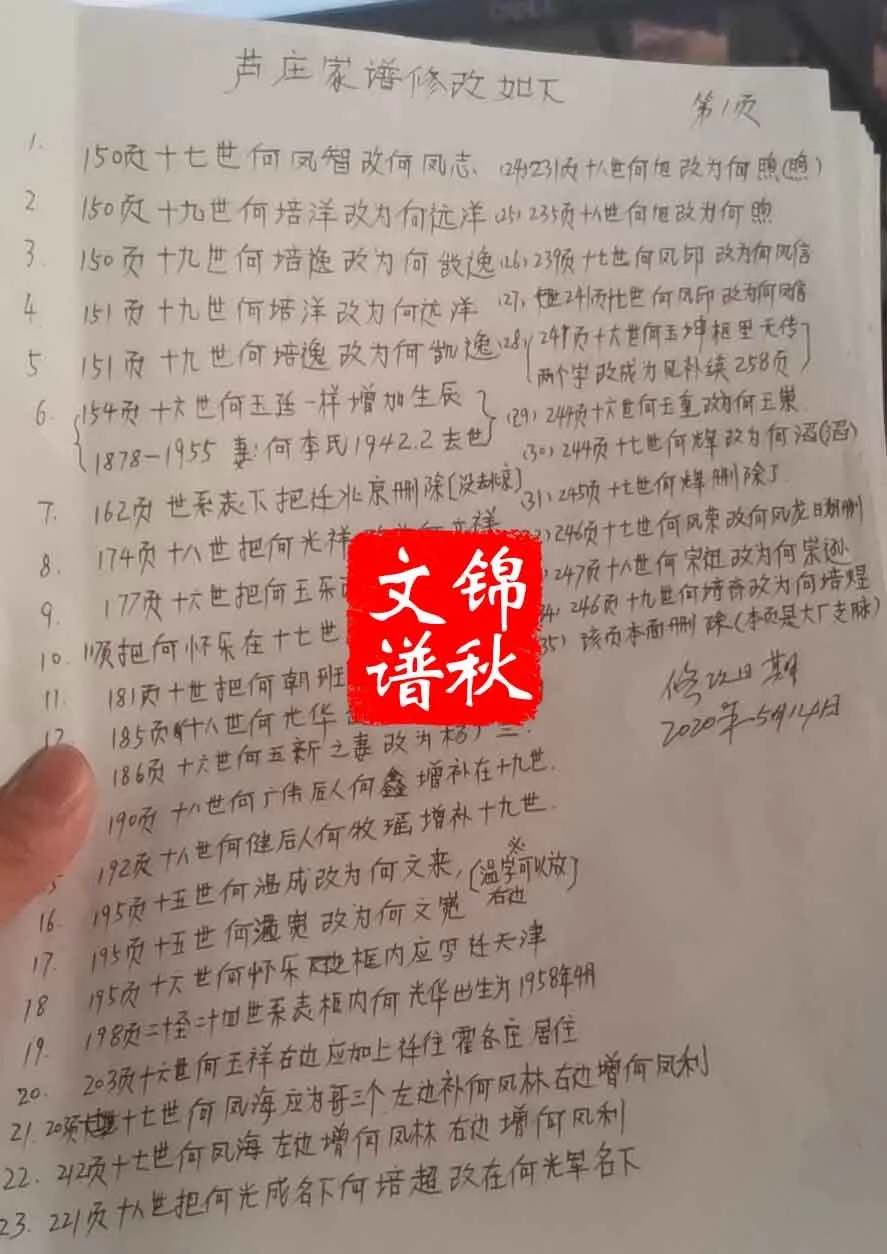 芦庄家谱修改如下
第1页
1. 150页十七世何凤智改何凤志.
2 150页十九世何培洋改为何远洋
3. 150页十九世何培逸改为何凯逸
4 151页十九世何培洋改为何远洋
5 151页十九世何培逸改为何凯逸
6. 154页十六世何玉廷一样增加生辰
1878-1955 妻:何李氏1942.2去世
7. 162页世系表下把迁北京删除[没去北京]
8. 174页十八世把何光祥
9. 177页十六世把何玉乐
10. 把何怀乐在十七世
11. 181页十世把何朝班
12 185页十八世何光华
186页十六世何五新之妻改为杨
190页十八世何广伟后人何鑫增补在十九世.
192页十八世何健后人何牧瑶增补十九世.
16. 195页十五世何温成改为何文来,[温字可以放右边]
17. 195页十五世何温宽改为何文宽
18 195页十六世何怀乐边框内应写迁天津
19. 198页二十至二十四世系表框内何光华出生为1958年4月
20. 203页十六世何玉祥右边应加上迁住霍各庄居住
21. 十七世何凤海应为哥三个左边补何凤林右边增何凤利
22. 212页十七世何凤海左边增何凤林右边增何凤利
23. 221页十八世把何光成名下何培超改在何光军名下
(24) 231页十八世何旭改为何煦(煦)
(25) 235页十八世何旭改为何煦
(26) 239页十七世何凤印改为何凤信
(27) 241页十七世何凤印改为何凤信
(28) 十六世何玉坤框里无传
两个字改成为见补续258页
(29) 244页十六世何玉重改为何玉崇
(30) 244页十七世何辉改为何滔(滔)
(31) 245页十七世何辉删除了
246页十七世何凤荣改何凤龙日期删
247页十八世何宗逊改为何崇逊
246页十九世何培奇改为何培煜
35) 该页本面删除(本页是大厂支脉)
修改日期
2020年5月14日
文锦
谱秋